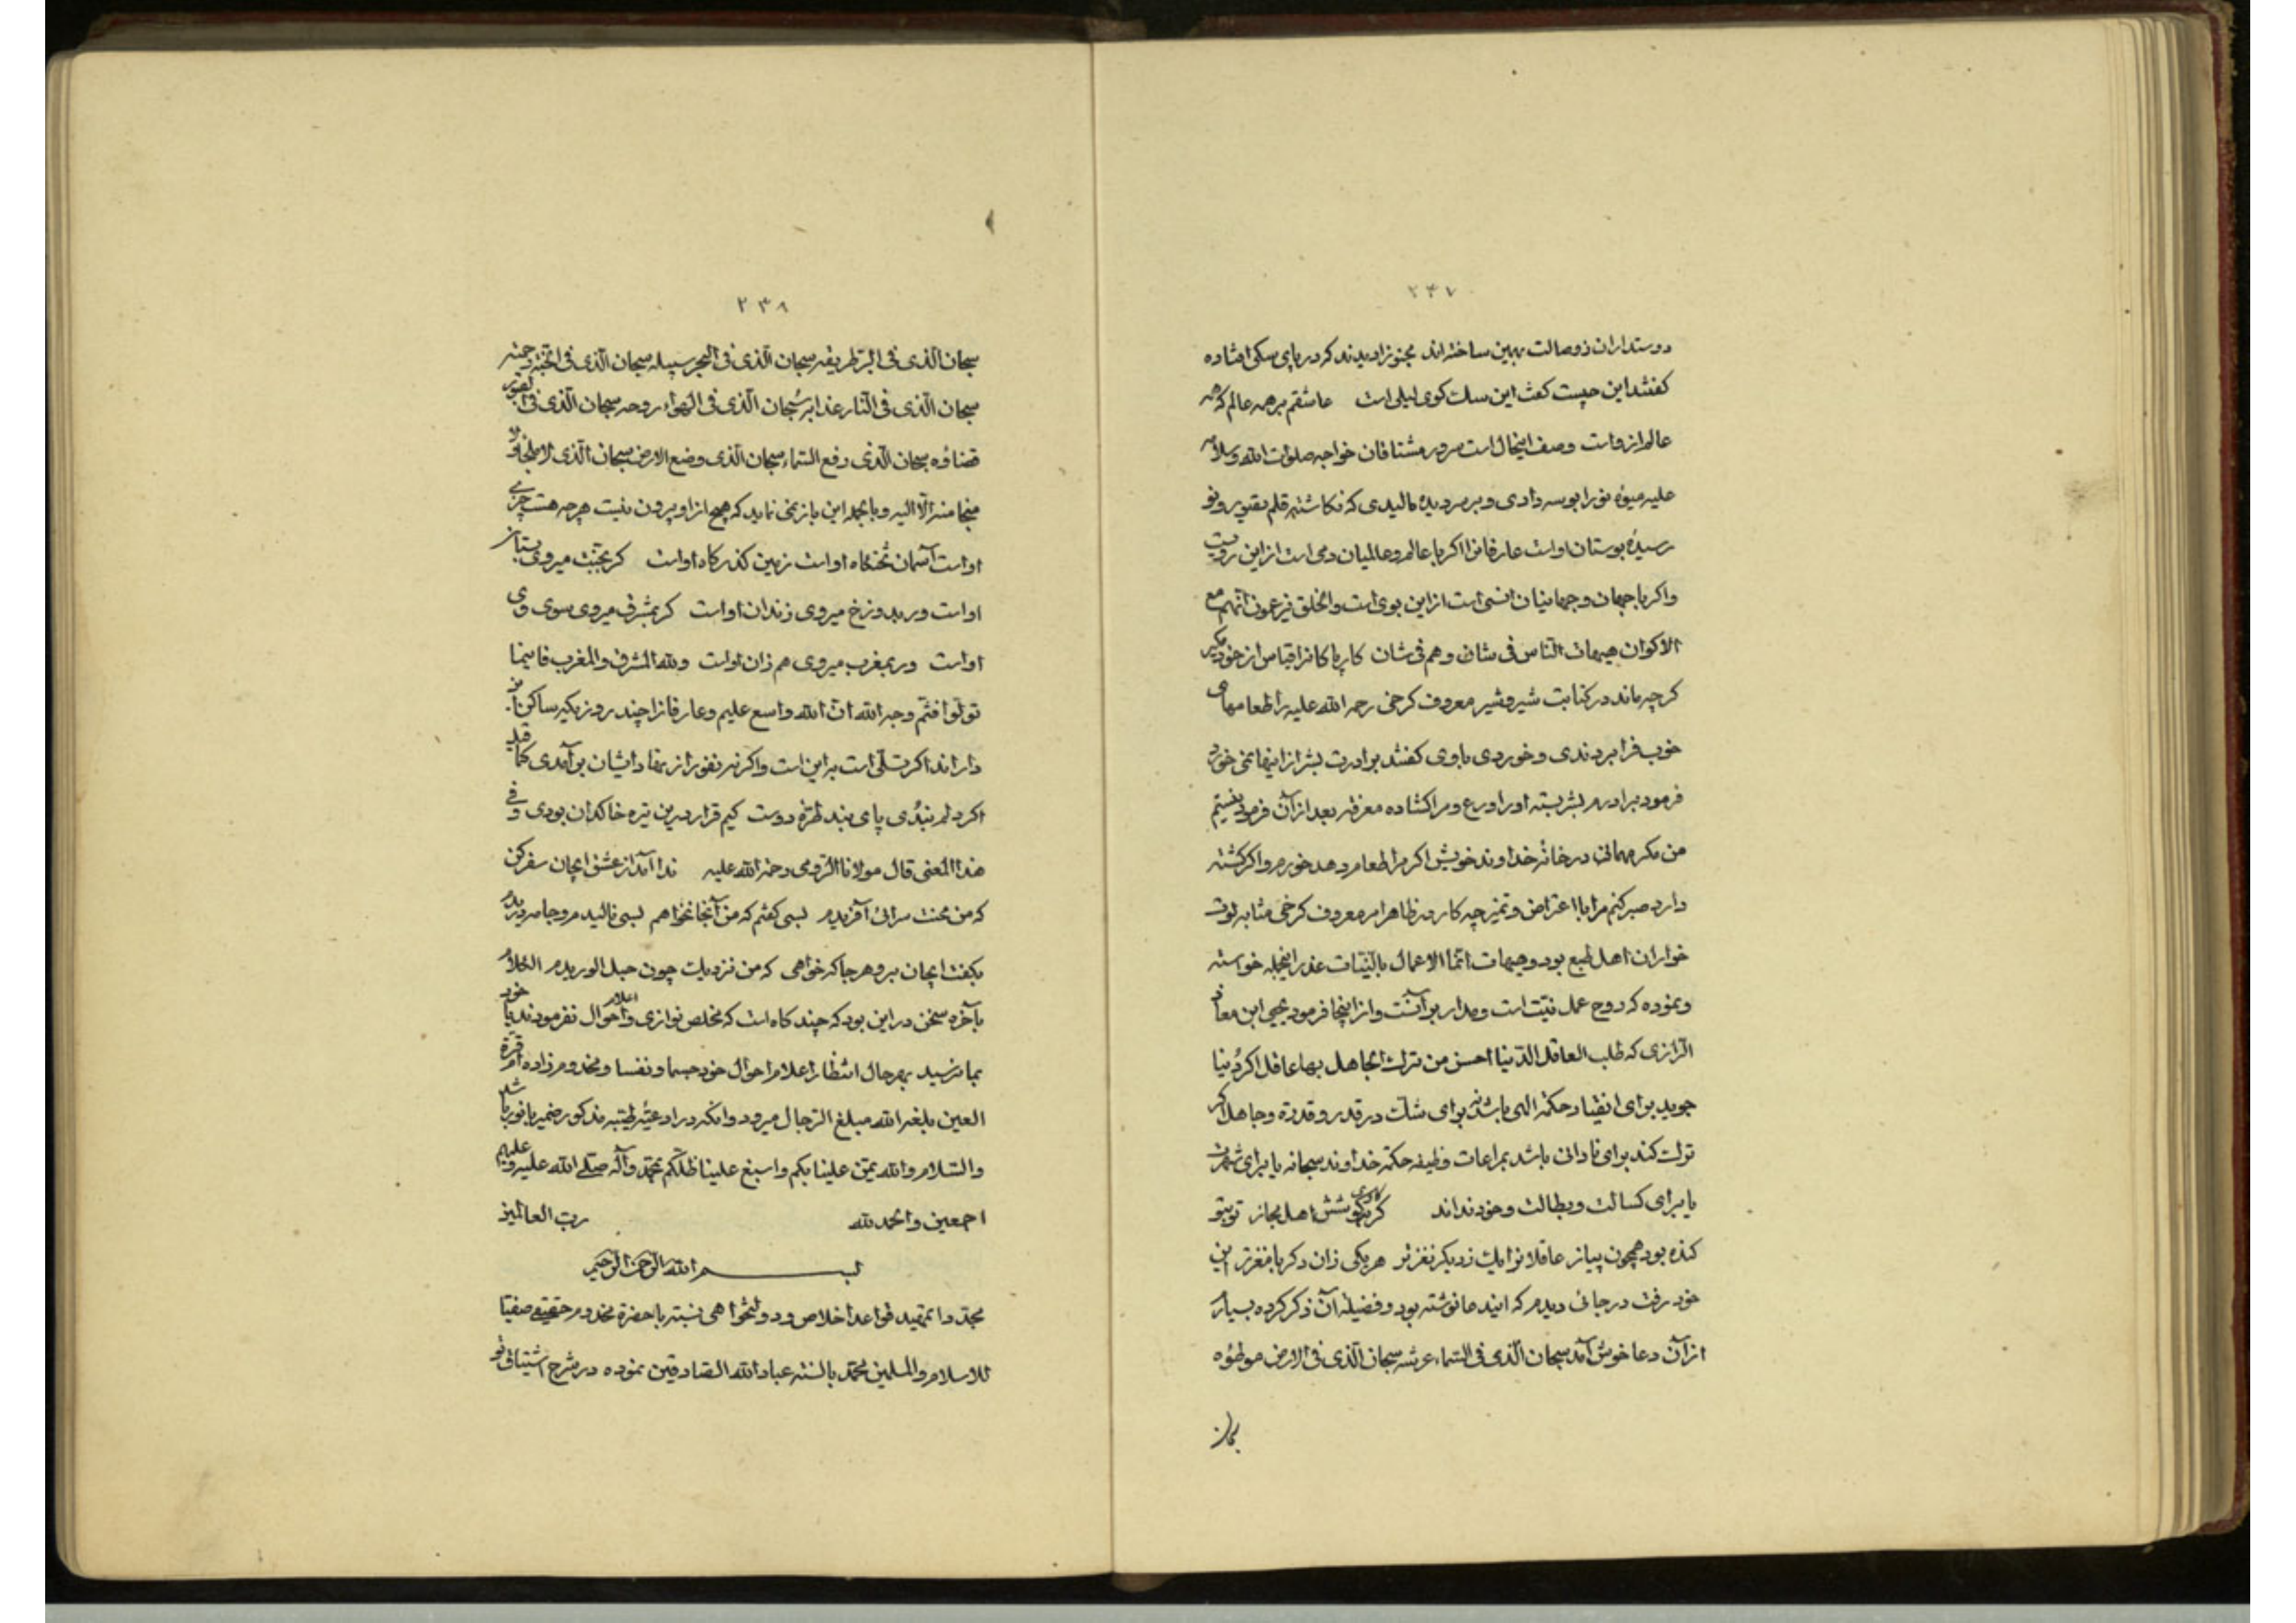 ۲۳۷
دوستداران ز وصالت بهمین ساخته‌اند مجنونرا دیدند که در پای سکی افتاده
کفتند این چیست کفت این سک کوی لیلی است عاشقم بر همه عالم که همه
عالم از وست وصف اینحال است سرور مشتاقان خواجه صلوات الله وسلامه
علیه میوهٔ نو را بوسه دادی و بر سر دیده مالیدی که نکاشتهٔ قلم تقدیر و نو
رسیدهٔ بوستان اوست عارفانرا اکر با عالم و عالمیان دمی است از این رویست
واکر با جهان وجهانیان انسی است از این بوی است والخلق نیز عموناً انهم مع
الاکوان هیهات الناس فی شان وهم فی شان کار پاکانرا قیاس از خود مکیر
کرچه ماند در کتابت شیر و شیر معروف کرخی رحمه الله علیه را طعامهای
خوب فرا بردندی و خوردی باوی کفتند برادرت بشر از اینها نمی خورد
فرمود برادرم بشر بسته اورا ورع ومرا کشاده معرفة بعد از آن فرمود نیستم
من مکر مهمانی در خانهٔ خداوند خویش اکرم اطعام دهد خورم واکر کشنه
دارد صبر کنم مرا با اعتراض و تمیز چه کار در ظاهر امر معروف کرخی مشابه لوت
خواران اهل طبع بود وهیهات انما الاعمال بالنیات عذر اینجمله خواسته
ونموده که روح عمل نیت است ومدار بر آنست واز اینجا فرمود یحیی ابن معاذ
الرازی که طلب العاقل الدنیا احسن من ترک الجاهل بها عاقل اکر دنیا
جوید برای انقیاد حکمة الهی باشد نه برای شک در قدر و قدرة وجاهل اکر
ترک کند برای نادانی باشد بمراعات وظیفه حکمة خداوند سبحانه یا برای شهرت
یا برای کسالت و بطالت وخود نداند کر بکوشش اهل مجاز تو بتو
کنده بود همچون پیاز عاقلانرا یک ز دیکر نغزتر هر یکی زان دکر با مغزتر این
خود رفت در جائی دیدم که ایندعا نوشته بود وفضیلة آن ذکر کرده بسیار
از آن دعا خوش آمد سبحان الذی فی السماء عرشه سبحان الذی فی الارض موطؤه
۲۳۸
سبحان الذی فی البر طریقه سبحان الذی فی البحر سبیله سبحان الذی فی الجنة رحمته
سبحان الذی فی النار عذابه سبحان الذی فی الهواء روحه سبحان الذی فی القبور
قضاؤه سبحان الذی رفع السماء سبحان الذی وضع الارض سبحان الذی لا ملجأ ولا
منجا منه الا الیه وبالجمله این باز می نماید که هیچ از او بیرون نیست هرچه هست چیزی
اواست آسمان تختکاه اواست زمین کذرکاه اواست کر بجنت میروی بستان
اواست ور بدوزخ میروی زندان اواست کر بمشرق میروی سوی وی
اواست ور بمغرب میروی هم زان اواست ولله المشرق والمغرب فاینما
تولوا فثم وجه الله ان الله واسع علیم وعارفانرا چند روز یکه ساکن آ
دارند اکر تسلی است به این است واکر نه نفور از بقاء ایشان برآمدی کما قیل
اکر دلم نبُدی پای بند طرهٔ دوست کیم قرار درین تیره خاکدان بودی وفی
هذا المعنی قال مولانا الرومی رحمة الله علیه ندا آمد از عشق ایجان سفر کن
که من محنت سرائی آفریدم بسی کفتم که من آنجا نخواهم بسی نالیدم وجامه دریدم
بکفت ایجان برو هرجا که خواهی که من نزدیک چون حبل الوریدم الکلام
بآخره سخن در این بود که چند کاه است که مخلص نوازی واعلام احوال نفرمودند یا خود
بما نرسید بهرحال انتظار اعلام احوال خود جسما ونفسا ومخدوم زاده‌ام قرة
العین بلغه الله مبلغ الرجال میرود وانکه در ادعیهٔ طیبه مذکور ضمیر با نور باشد
والسلام والله یمن علینا بکم واسبغ علینا ظلکم بمحمد وآله صلی الله علیه وعلیهم
اجمعین والحمد لله رب العالمین
بسم الله الرحمن الرحیم
مجددا تمهید قواعد اخلاص ودولتخواهی نسبة با حضرة مخدوم حقیقی صفیا
للاسلام والمسلمین محمد بالسنهٔ عباد الله الصادقین نموده در شرح اشتیاق نو